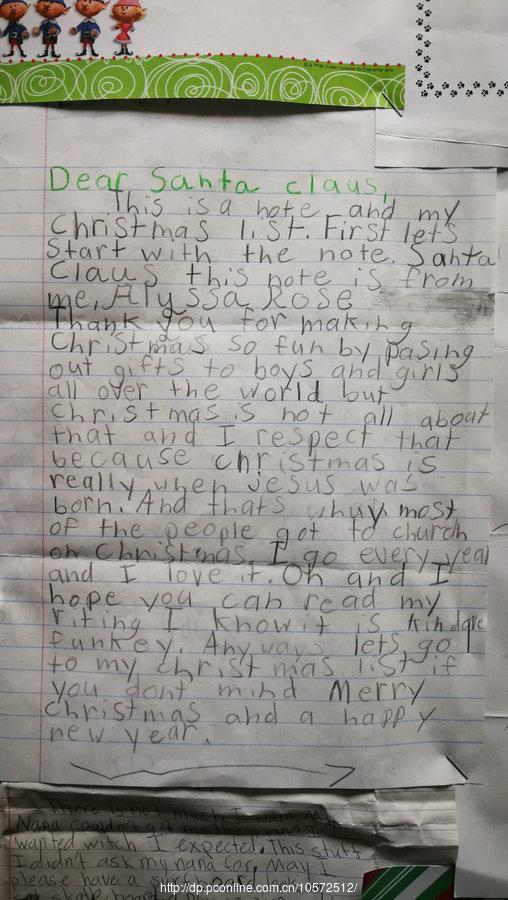 Dear Santa claus,
This is a note and my
Christmas list. First lets
Start with the note. Santa
Claus this note is from
me, Alyssa Rose
Thank you for making
Christmas so fun by pasing
out gifts to boys and girls
all over the world but
christmas is not all about
that and I respect that
because christmas is
really when jesus was
born. And thats whuy most
of the people got to church
on Christmas. I go every year
and I love it. Oh and I
hope you can read my
riting I know it is kindave
funkey. Anyways lets go
to my christmas list if
you dont mind Merry
Christmas and a happy
new year.
There is not much I want. My
Nana couldn't get me the
wanted witch I expected. This stuff
I didn't ask my nana for. May I
please have a
http://dp.pconline.com.cn/10572512/